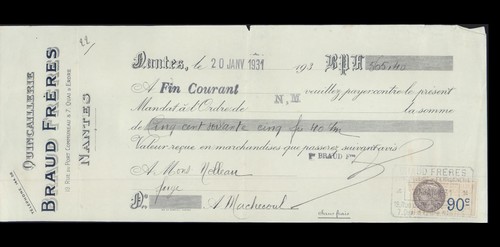 QUINCAILLERIE
BRAUD FRÈRES
10, RUE DU PORT COMMUNEAU & 7, QUAI D'ERDRE
NANTES
22
Nantes, le 20 JANV 1931 193 B.P.F. 565,40
A Fin Courant N, M veuillez payer contre le présent
Mandat à l'Ordre de la somme
de Cinq cent soixante cinq frs 40 cm
Valeur reçue en marchandises que passerez suivant avis
Pr BRAUD Fres
A Mons Rolleau
A Machecoul
sans frais
BRAUD FRÈRES
90c